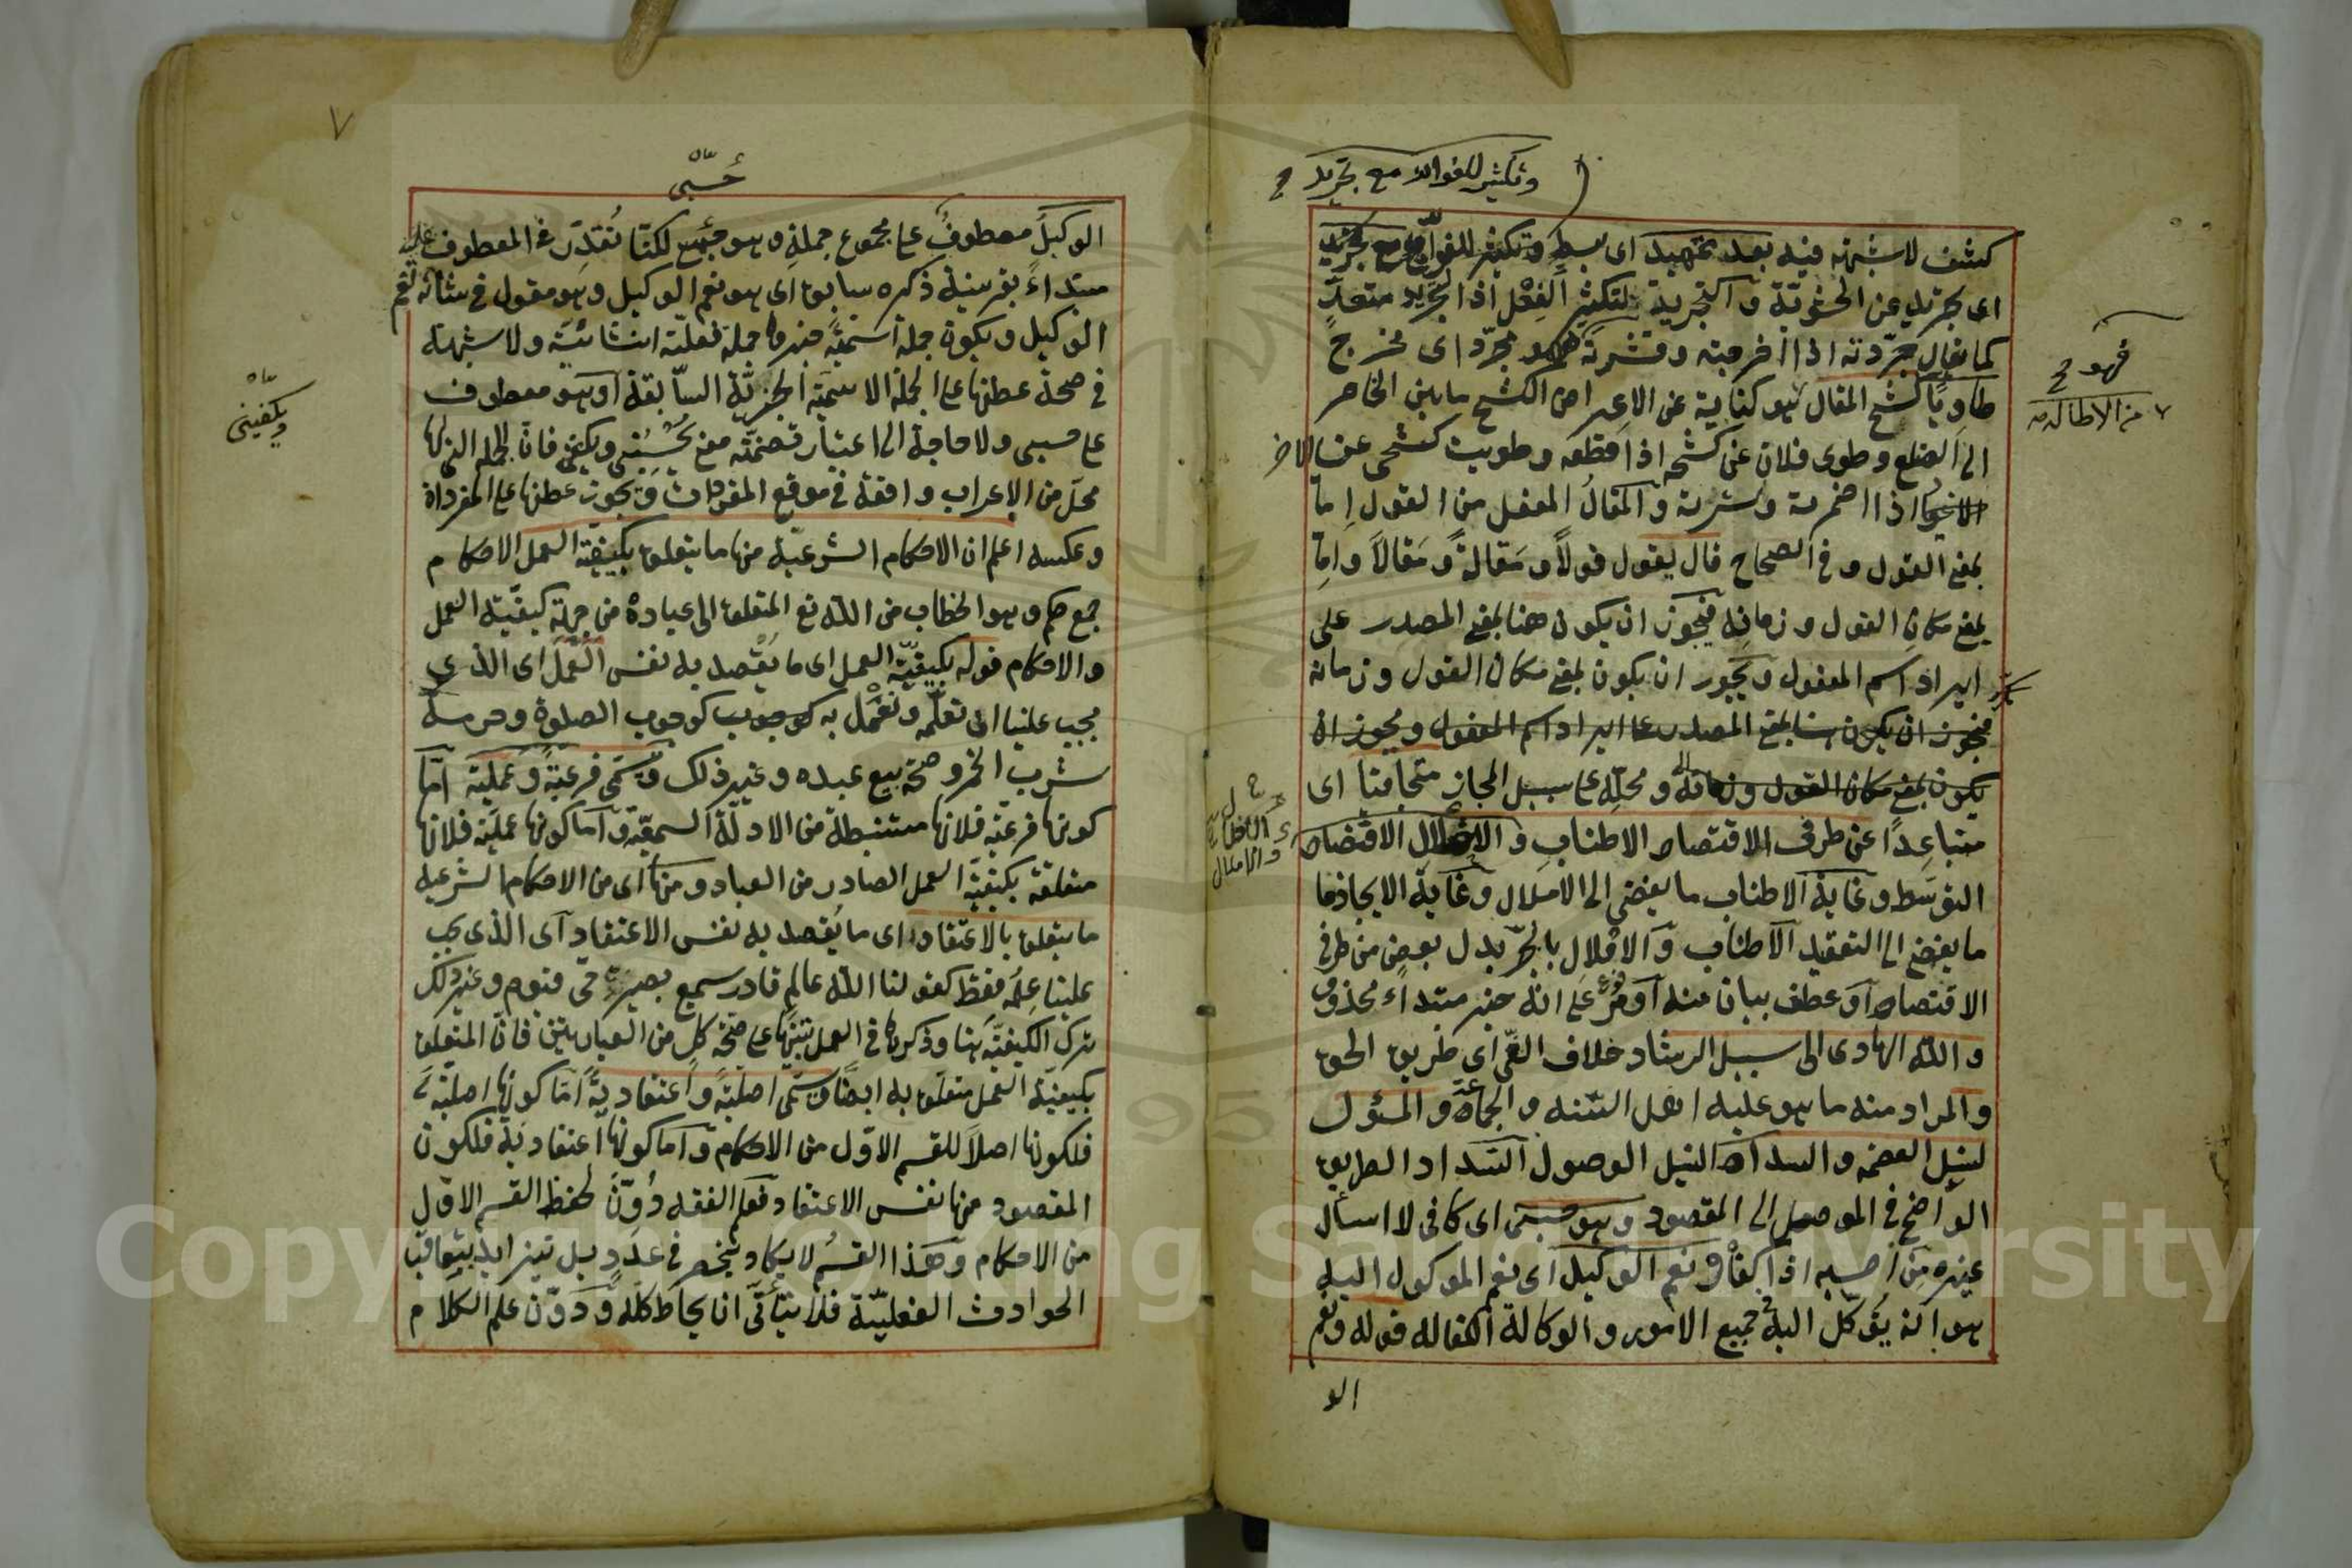 وتكثير للفوائد مع تجريد
كشف لاشبهة فيه بعد تمهيد اى بسط وتكثير للفوائد مع تجريد
اى تجريد عن الحشو
كما يقال جرّدته اذا اخرجته وقشرته فهو مجرّد اى مخرج
طاويًا كشح المقال هو كناية عن الاعراض الكشح ما بين الخاصر
الى الضلع وطوى فلان عنى كشحه اذا قطعه وطويت كشحى عن الامر
اذا اضمرته وسترته والمقالُ المفعل من القول إما
بمعنى القول وفى الصحاح قال يقول قولاً ومَقالةً ومَقالاً وامّا
بمعنى مكان القول وزمانه فيجوز ان يكون هنا بمعنى المصدر على
ايراد اسم المفعول ويجوز ان يكون بمعنى مكان القول وزمانه
فيجوز ان يكون هنا بمعنى المصدر على ايراد اسم المفعول ويجوز ان
يكون بمعنى مكان القول وزمانه ومحلّه على سبيل المجاز متجافيا اى
متباعِدًا عن طرفى الاقتصاد الاطناب والاخلال الاقتصاد
التوسّط وغاية الاطناب ما يفضى الى الاملال وغاية الايجاز ما
ما يفضى الى التعقيد الاطناب والاخلال بالجرّ بدل بعض من طرفى
الاقتصاد او عطف بيان منه او رفع على انّه خبر مبتداء محذوف
والله الهادى الى سبيل الرشاد خلاف الغىّ اى طريق الحق
والمراد منه ما هو عليه اهل السّنه والجماعة والمسؤل
لنيل العصمة والسداد النيل الوصول السّداد الطريق
الواضح فى الموصل الى المقصود وهو حسبى اى كافى لا اسأل
غيره من احسبه اذا كفاه ونعم الوكيل اى نعم الموكول اليه
هو انه يُوكّل اليه جميع الامور والوكالة الكفاله قوله ونعم
الو
فهو
من الاطالة
٧
حسبى
الوكيل معطوفُ على مجموع جملةِ وهو حسبى لكنّا نُقدّر فى المعطوف عليه
مبتداءً بقرينة ذكره سابق اى هو نعم الوكيل وهو مقول فى شانه نعم
الوكيل ويكون جملة اسميّةً خبرها جملة فعليّة انشائيّة ولا شبهة
فى صحة عطفها على الجملة الاسميّة الخبريّة السّابقة او هو معطوف
على حسبى ولا حاجة الى اعتبار تضمّنه معنى يُحْسِبُنى ويكفى فانّ الجمل التى لها
محلّ من الإعراب واقعة فى موقع المفردات ويجوز عطفها على المفرداة
وعكسه اعلم ان الاحكام الشرعيّة منها ما يتعلق بكيفيّة العمل الاحكام
جمع حكم وهو الخطاب من الله تع المتعلق الى عباده من جهة كيفيّة العمل
والاحكام قوله بكيفيّة العمل اى ما يُقصد به نفس العمل اى الذى
يجب علينا ان تعلّمه ونعمل به كوجوب الصلوة وحرمة
شرب الخمر وصحّة بيع عبده وغير ذلك وتسمّى فرعيّةً وعمليّة امّا
كونها فرعيّة فلانها مستنبطة من الادلّة السمعيّة وامّا كونها عمليّة فلانها
متعلقة بكيفيّة العمل الصادر من العباد ومنها اى من الاحكام الشرعيه
ما يتعلق بالاعتقاد اى ما يُقصد به نفس الاعتقاد اى الذى يجب
علينا عِلمه فقط كقولنا الله عالم قادر سميع بصير حى قيوم وغير ذلك
ترك الكيفيّة هنا وذكرها فى العمل تنبيهًا على صحّة كل من العبارتين فانّ المتعلق
بكيفيّة العمل متعلق به ايضًا وتسمّى اصليّةً واعتقاديّةً امّا كونها اصليّة
فلكونها اصلاً للقسم الاوّل من الاحكام وامّا كونها اعتقاديّة فلكون
المقصود منها نفس الاعتقاد فعلم الفقه دُوّنَ لحفظ القسم الاوّل
من الاحكام وهذا القسمُ لا يكاد ينحصر فى عدد بل تتزايد بتعاقب
الحوادث الفعليّة فلا يتأتّى ان يحاط كلّه ودوّن علم الكلام
ويكفينى
Copyright © King Saud University